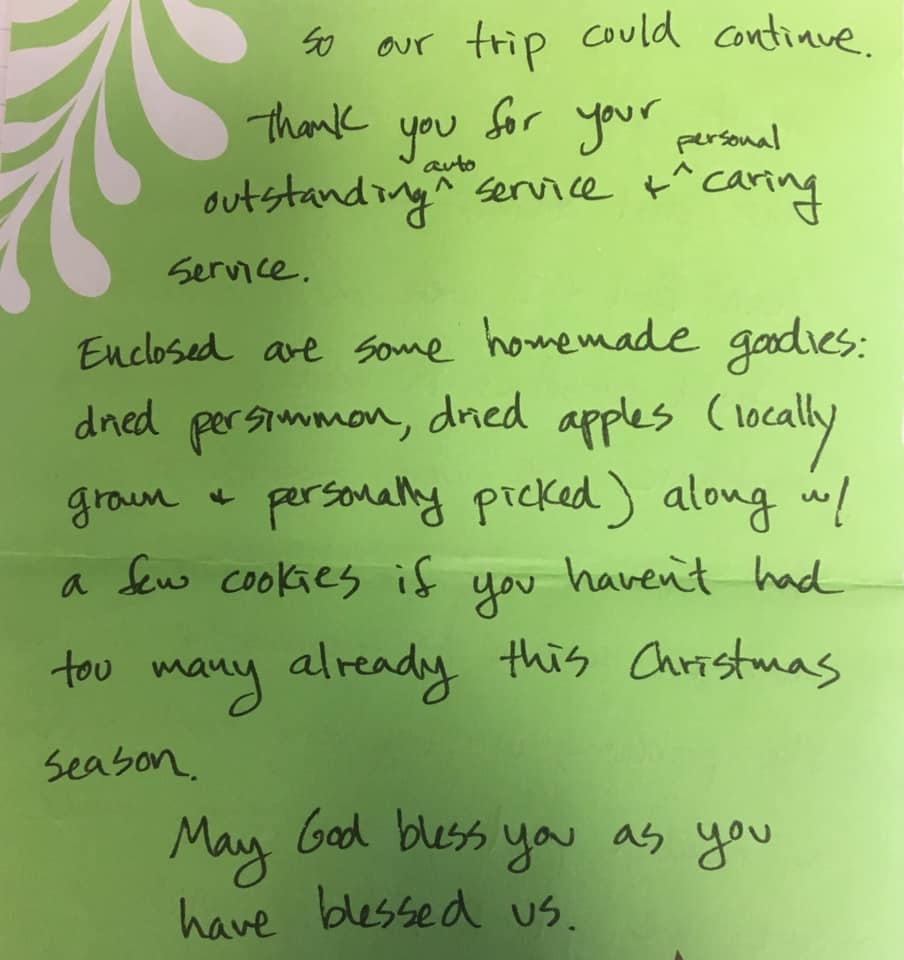 so our trip could continue.
Thank you for your
outstanding ^auto service + ^personal caring
service.
Enclosed are some homemade goodies:
dried persimmon, dried apples (locally
grown + personally picked) along w/
a few cookies if you haven't had
too many already this Christmas
season.
May God bless you as you
have blessed us.